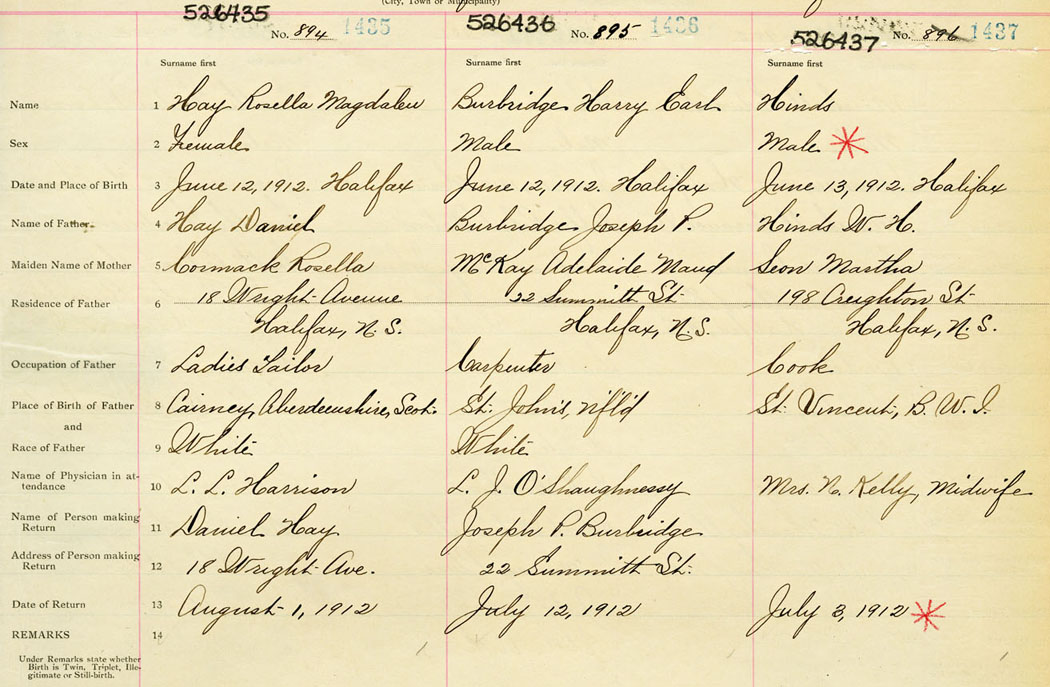 (City, Town or Municipality)
526435 526436 526437
No. 894 1435 No. 895 1436 No. 896 1437
Surname first Surname first Surname first
Name 1 Hay Rosella Magdalen Burbridge Harry Earl Hinds
Sex 2 Female Male Male
Date and Place of Birth 3 June 12, 1912. Halifax June 12, 1912. Halifax June 13, 1912. Halifax
Name of Father 4 Hay Daniel Burbridge Joseph P. Hinds W. H.
Maiden Name of Mother 5 Cormack Rosella McKay Adelaide Maud Seon Martha
Residence of Father 6 18 Wright Avenue 22 Summitth St. 198 Creighton St
Halifax, N. S. Halifax, N. S. Halifax, N. S.
Occupation of Father 7 Ladies Tailor Carpenter Cook
Place of Birth of Father 8 Cairney, Aberdeenshire, Scot. St. John's, Nfl'd St. Vincent, B. W. I.
and
Race of Father 9 White White
Name of Physician in at-
tendance 10 L. L. Harrison L. J. O'Shaughnessy Mrs. N. Kelly, Midwife
Name of Person making
Return 11 Daniel Hay Joseph P. Burbridge
Address of Person making
Return 12 18 Wright Ave. 22 Summitth St.
Date of Return 13 August 1, 1912 July 12, 1912 July 3, 1912
REMARKS 14
Under Remarks state whether
Birth is Twin, Triplet, Ille-
gitimate or Still-birth.